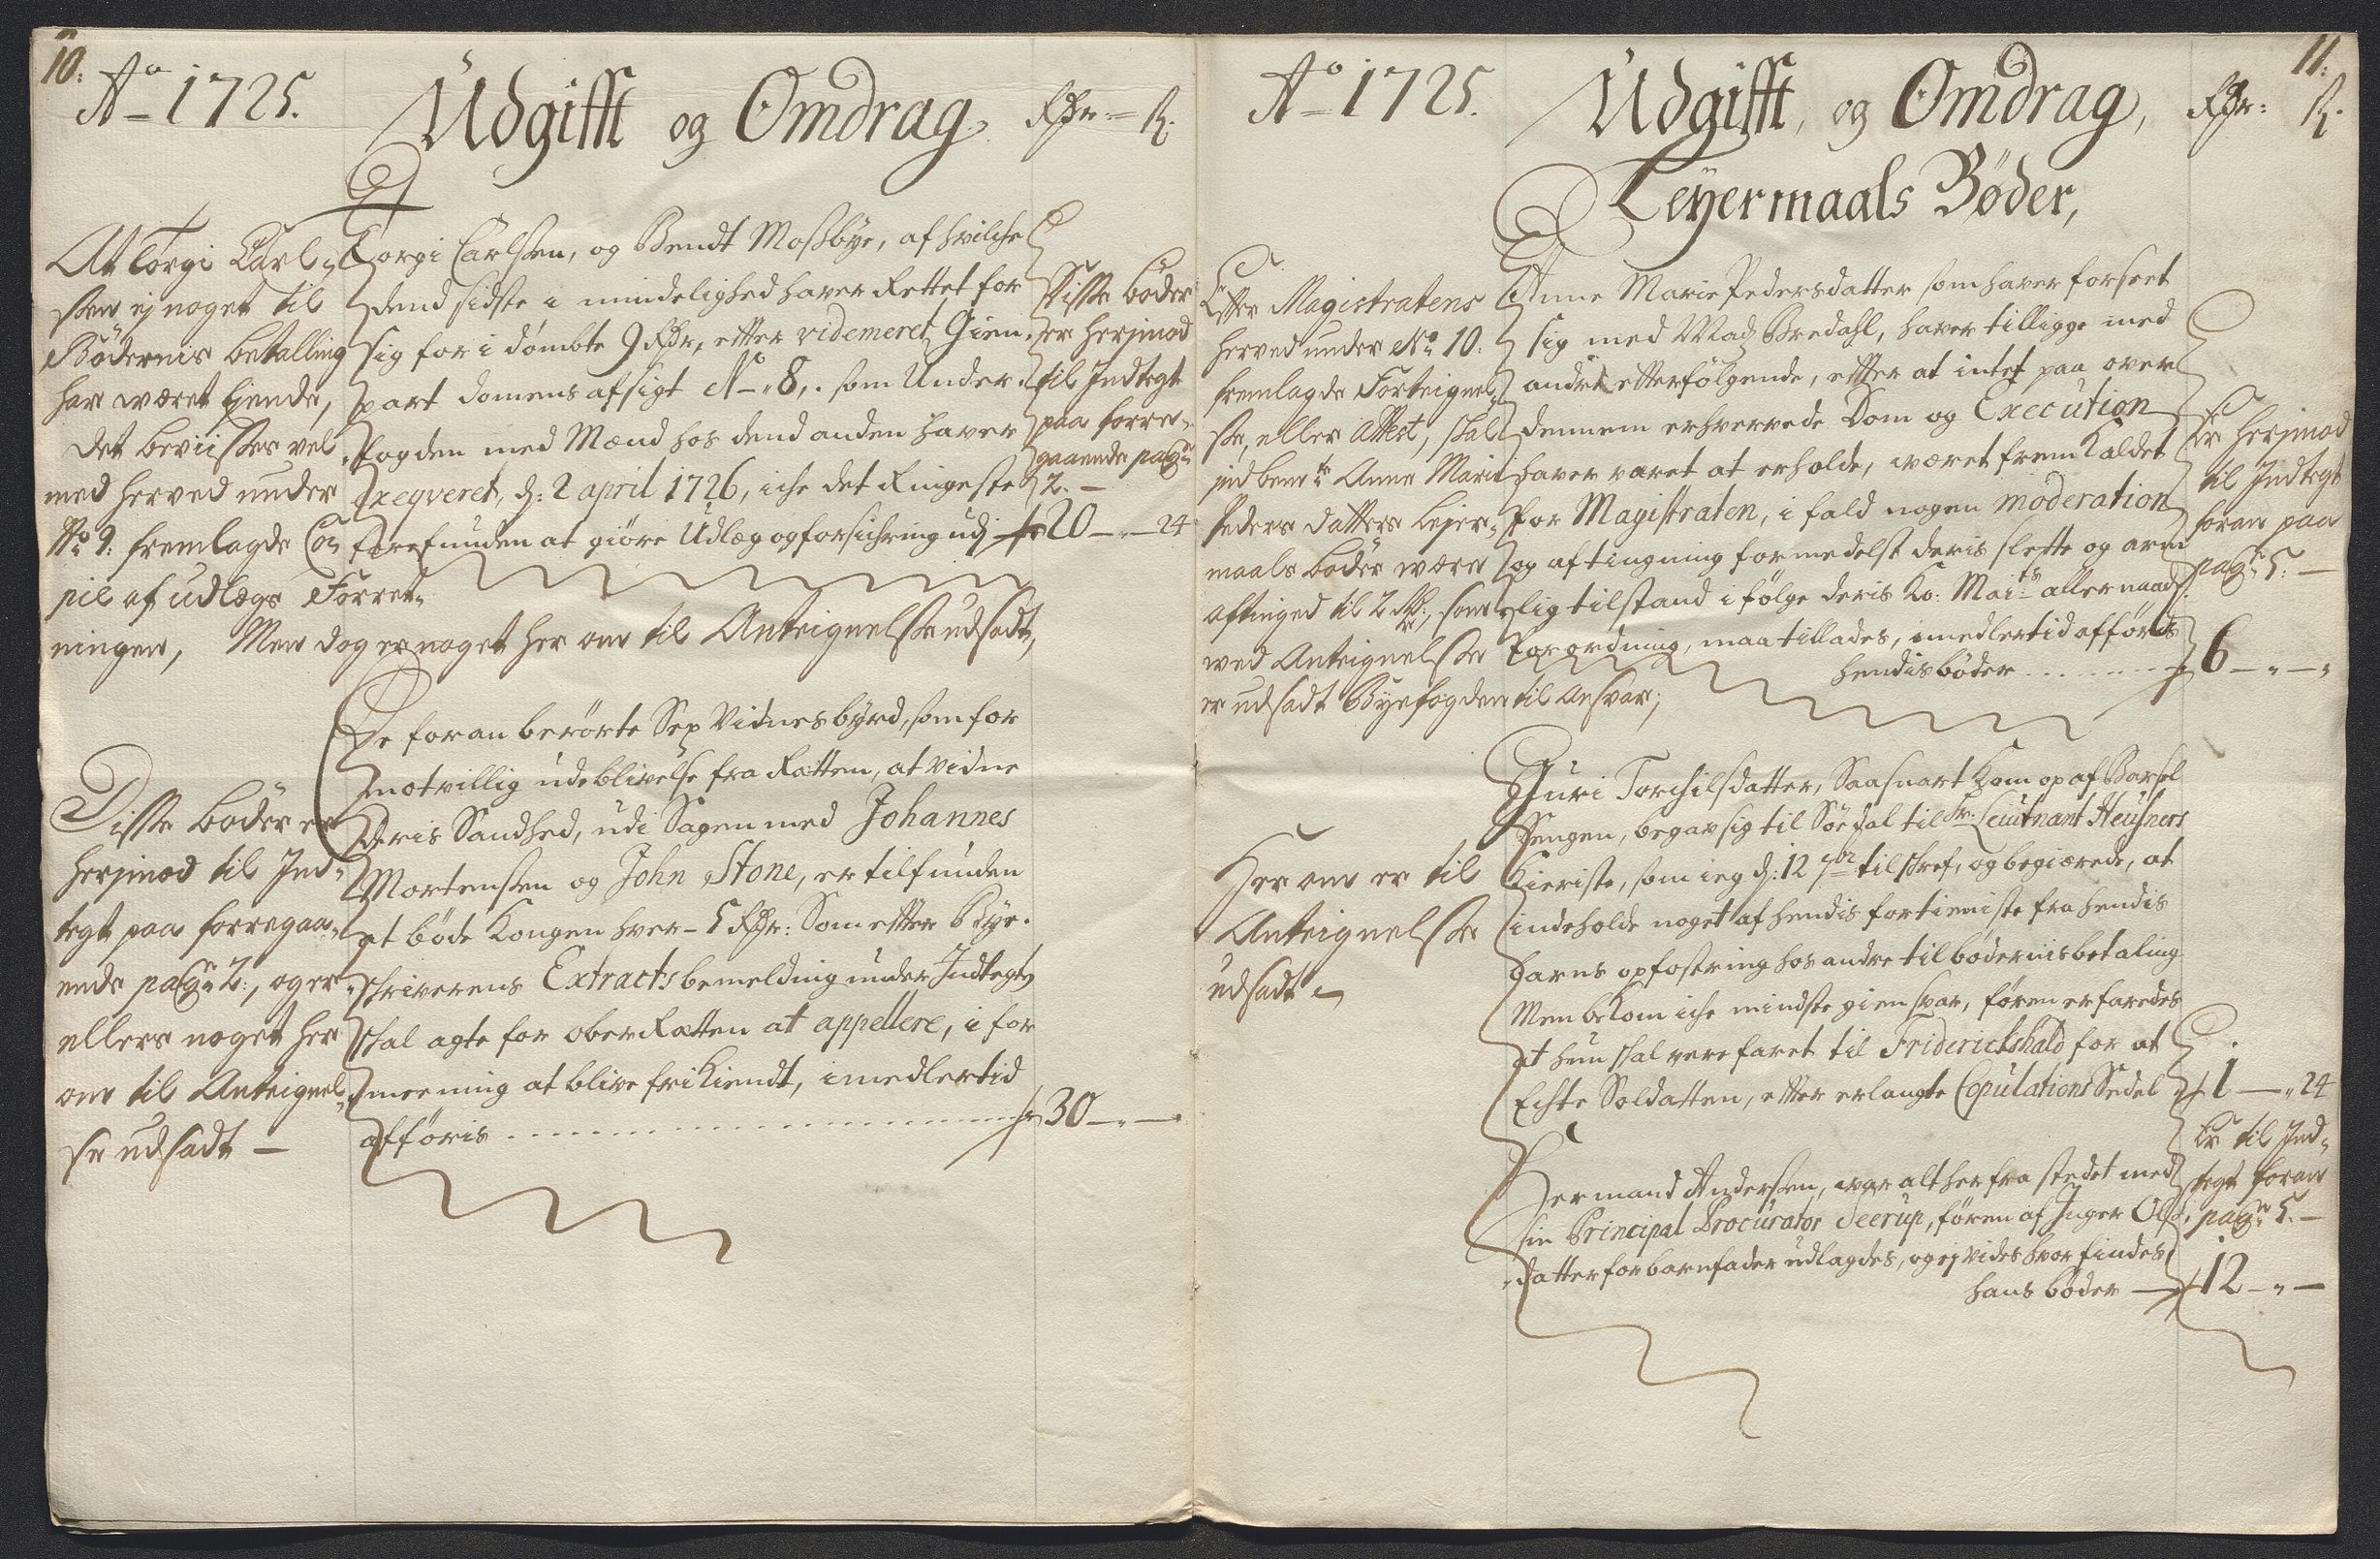 10.
Ao 1725.
Udgifft og Omdrag
Rdr: ß.
At Torgi Carl-
sen ej noget til
Bödernis betalling
har været ejende,
det beviisses vel
med herved under
No 9: fremlagde Co-
pie af udlægs Forret-
ningen, Men dog er noget her om til Anteignelsse udsadt,
Torgi Carlssen, og Bendt Mossbye, af hvilche
dend sidste i mindelighed haver Rettet for
sig for i dömbte 9 Rdr, efter videmeret Gien-
part domens afsigt No 8,. som Under-
fogden med Mænd hos dend anden haver
Exeqveret, d: 2 april 1726, iche det Ringeste
forefunden at giöre Udlæg og forsichring udj
Disse böder
er herimod
til Indtegt
paa forre-
gaaende pag:
2. -
20 - " - 24
Disse böder er
herimod til Ind-
tegt paa forregaa-
ende pag: 2:, og er
ellers noget her
om til Anteignel-
se udsadt -
De foran berörte Sex Vidnesbyrd, som for
motvillig udeblivelse fra Rætten, at vidne
deris Sandhed, udi Sagen med Johannes
Mortenssen og John Stone, er tilfunden
at böde Kongen hver - 5 Rdr: Som effter Bye-
schriverens Extracts bemelding under Indtegten
schal agte for ober Rætten at appellere, i for
meening at blive frikiendt, imedlertid
afföris
30 - " -
11.
Ao 1725.
Udgifft, og Omdrag,
Rdr: ß.
Leyermaals Böder,
Efter Magistratens
herved under No 10:
fremlagde Forteignel-
se, eller Attest, skal
Anne Marie
Peders datters lejer-
maals böder være
aftinged til 2 Rdr, som
ved Anteignelsse
er udsadt Byefogden til ansvar;
Anne Marie Pedersdatter som haver forseet
sig med Mads Bredahl, haver tilligge med
andre efterfölgende, effter at intet paa over
dennem erhvervede Dom og Execution
haver varet at erholde, været fremkaldet
for Magistraten, i fald nogen moderation
og aftingning formedelst deris slette og arm-
elig tilstand i fölge deris Ko: Maits allernaadst
Forordning, maa tillades, imedlertid afföres
hendis böder
Er herimod
til Indtegt
foran paa
pag: 5: -
6 - " - "
Her om er til
Anteignelsse
udsadt
Guri Torchilsdatter, Saasnart kom op af Barsel
Sengen, begav sig til Sördal til Hr: Leutnant Heusners
Kieriste, som ieg d: 12 7br tilschref, og begiærede, at
indeholde noget af hendis fortieniste fra hendis
barns opfostring hos andre til bödernis betaling
Men bekom iche mindste giensvar, fören erfaredes
at hun skal være faret til Friderichshald for at
Echte Soldatten, efter erlangte Copulations Sedel
1 - " 24
Hermand Anderssen, var alt her fra stedet med
sin Principal Procurator Seerup, fören af Inger Ols-
datter for barnefader udlagdes, og ej vides hvor findes
hans böder
Er til Ind-
tegt foran
pag: 5. -
12 - " -